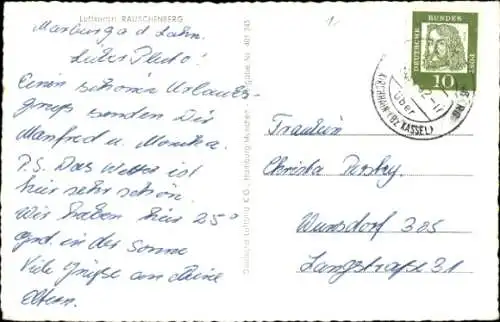 Luftkurort RAUSCHENBERG
Marburg a d Lahn.
Liebe Pluto!
Einen schönen Urlaubs-
gruß senden Dir
Manfred u. Monika.
P.S. Das Wetter ist
hier sehr schön.
Wir haben hier 25°
grd. in der Sonne
Viele Grüße an Deine
Eltern.
Deutsche Luftbild K.G., Hamburg München
401 245
1
DEUTSCHE
BUNDES
POST
10
über
KIRCHHAIN (BZ KASSEL)
Fräulein
Christa
Wunsdorf 305
Langstraße 31